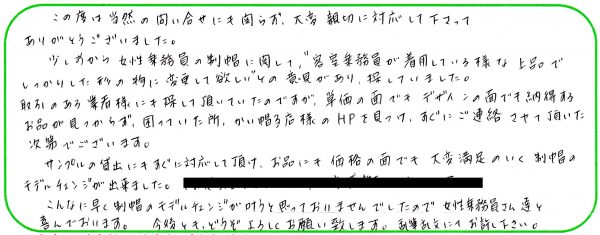 この度は当然の問い合せにも関らず、大変親切に対応して下さって
ありがとうございました。
少し前から女性乗務員の制帽に関して、"客室乗務員が着用している様な上品で
しっかりした形の物に変更して欲しい"との意見があり、探していました。
取引のある業者様にも探して頂いていたのですが、単価の面でもデザインの面でも納得する
お品が見つからず、困っていた所、かい帽る店様のHPを見つけ、すぐにご連絡させて頂いた
次第でございます。
サンプルの貸出にもすぐに対応して頂け、お品にも価格の面でも大変満足のいく制帽の
モデルチェンジが出来ました。
こんなに早く制帽のモデルチェンジが叶うと思っておりませんでしたので女性乗務員さん達と
喜んでおります。今後とも、どうぞよろしくお願い致します。乱筆乱文にてお許し下さい。